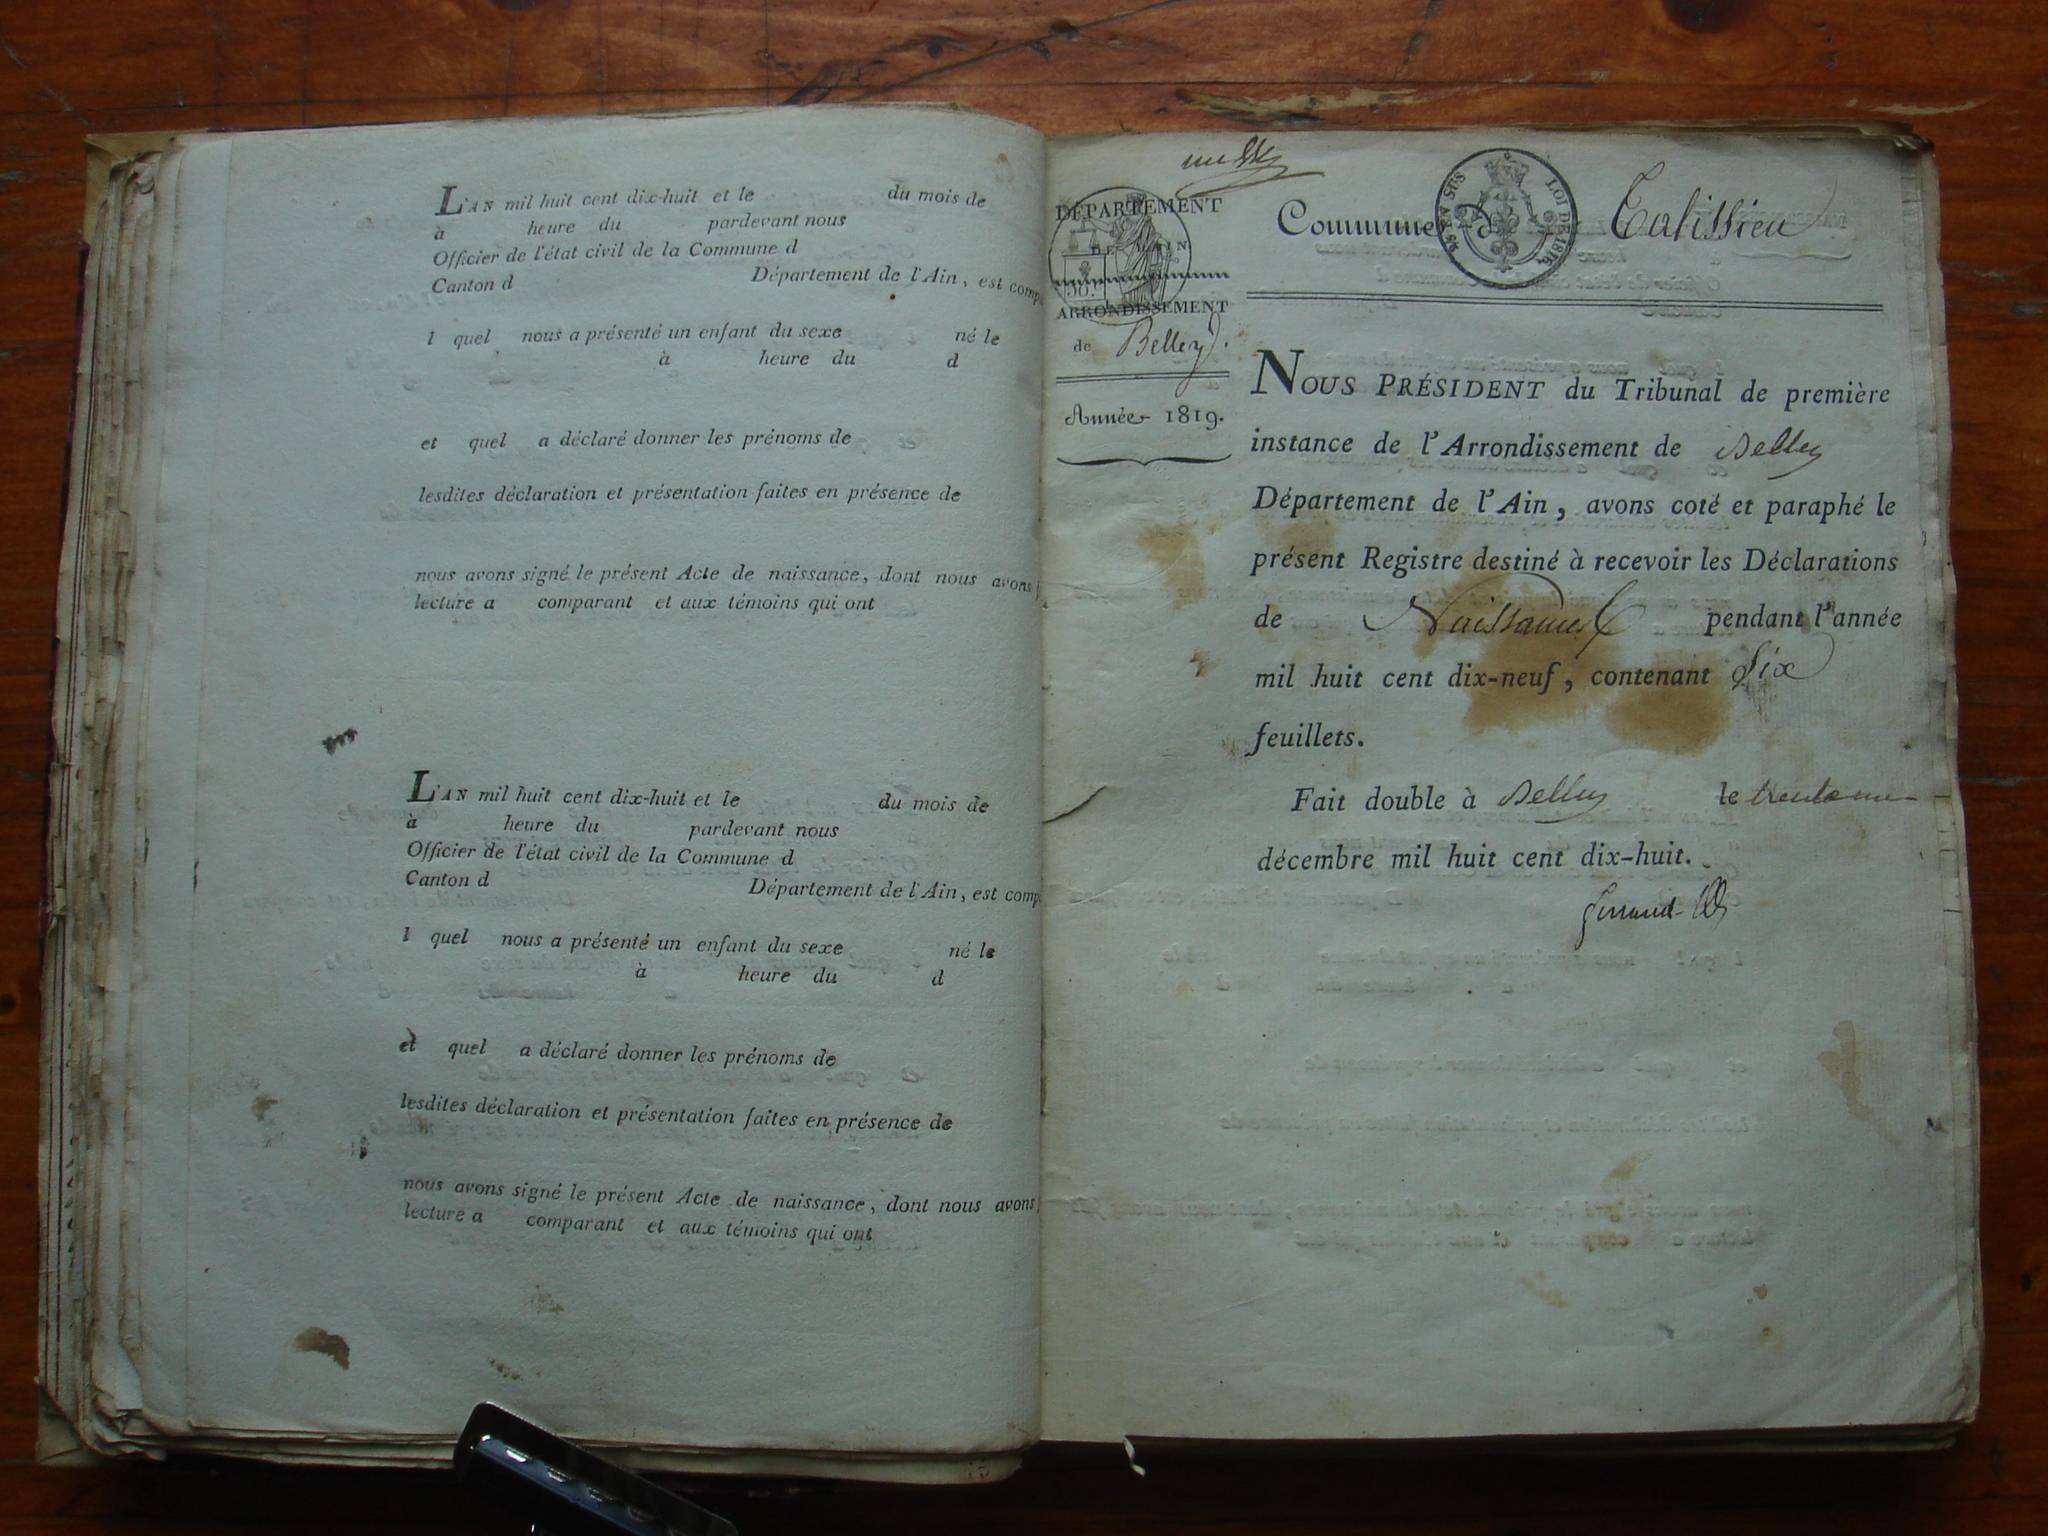 L'AN mil huit cent dix-huit et le du mois de
à heure du pardevant nous
Officier de l'état civil de la Commune d
Canton d Département de l'Ain, est comp
l quel nous a présenté un enfant du sexe né le
à heure du d
et quel a déclaré donner les prénoms de
lesdites déclaration et présentation faites en présence de
nous avons signé le présent Acte de naissance, dont nous avons
lecture a comparant et aux témoins qui ont
L'AN mil huit cent dix-huit et le du mois de
à heure du pardevant nous
Officier de l'état civil de la Commune d
Canton d Département de l'Ain, est comp
l quel nous a présenté un enfant du sexe né le
à heure du d
et quel a déclaré donner les prénoms de
lesdites déclaration et présentation faites en présence de
nous avons signé le présent Acte de naissance, dont nous avons
lecture a comparant et aux témoins qui ont
DÉPARTEMENT
DE L'AIN
50.
ARRONDISSEMENT
de Belley.
Année 1819.
Commune d Talissieu
LOI DE 1816.
NOUS PRÉSIDENT du Tribunal de première
instance de l'Arrondissement de Belley
Département de l'Ain, avons coté et paraphé le
présent Registre destiné à recevoir les Déclarations
de Naissances pendant l'année
mil huit cent dix-neuf, contenant Six
feuillets.
Fait double à Belley le trente un
décembre mil huit cent dix-huit.